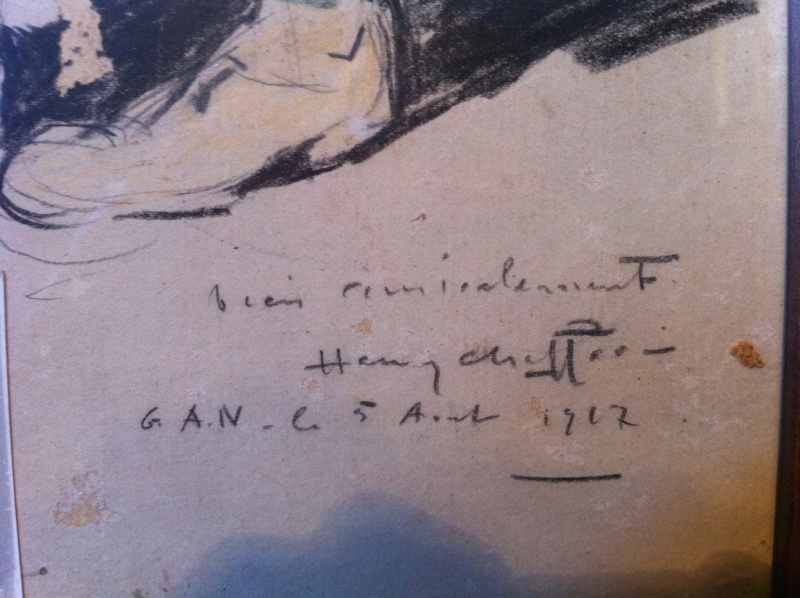 bien amicalement
Henry
G.A.N. le 5 Aout 1917